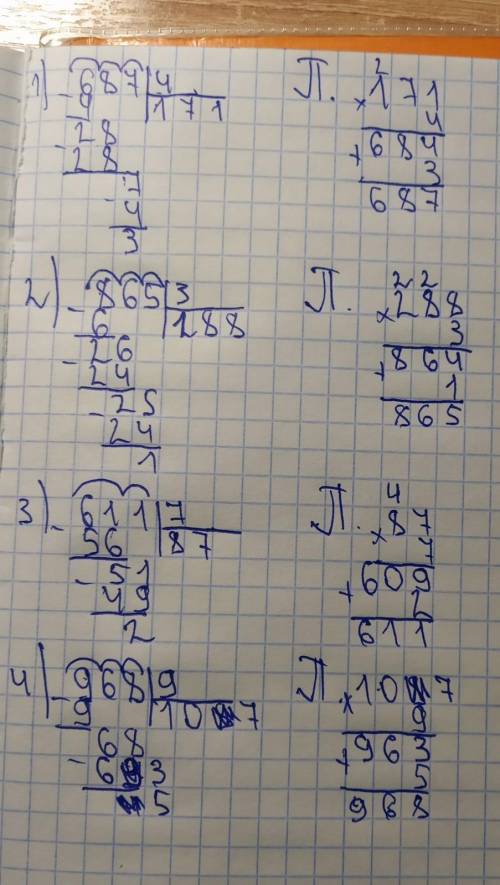 1) 687 4 П. 2
- 4 171 × 171
28 4
- 28 684
7 + 3
- 4 687
3
2) 865 3 П. 22
- 6 288 × 288
26 3
- 24 864
25 + 1
- 24 865
1
3) 611 7 П. 4
- 56 87 × 87
51 7
- 49 609
2 + 2
611
4) 968 9 П. 107
- 9 107 × 9
68 963
- 63 + 5
5 968